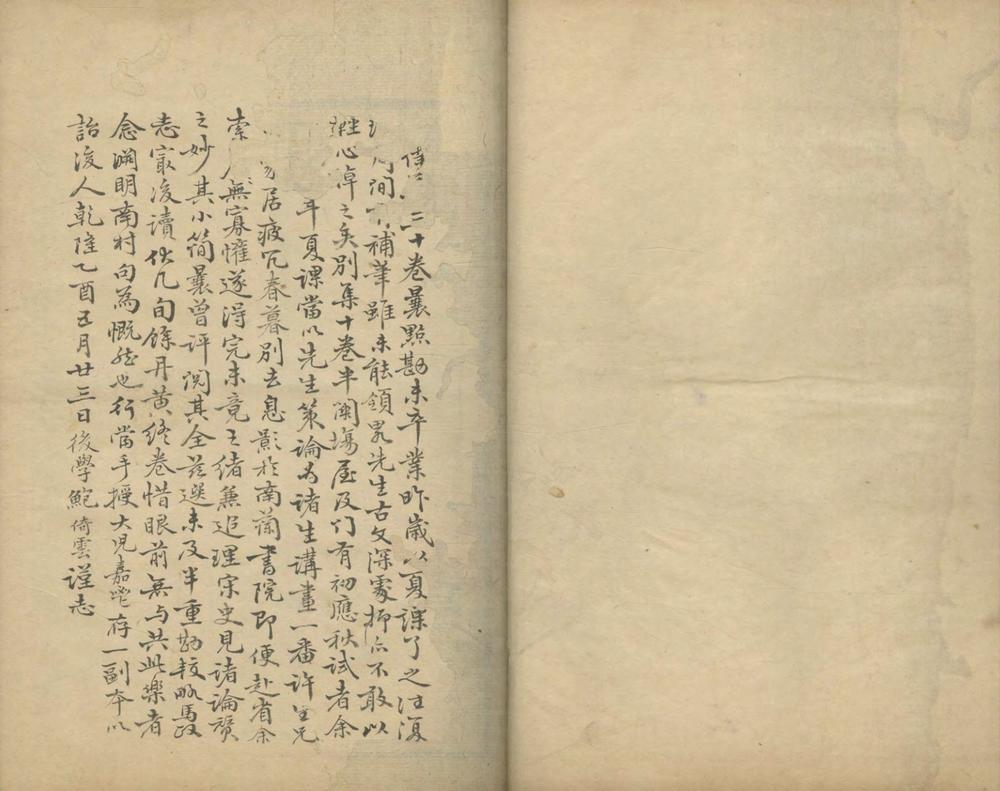 二十卷曩點勘未卒業昨歲以夏課了之注復
間補筆雖未能領畧先生古文深處抑亦不敢以
心淖之矣別集十卷半闌場屋及门有初應秋試者余
年夏課當以先生策論为諸生講畫一番許生兄
居疲冗春暮別去息影於南蘭書院即便赴省余
索無寡懽遂得完未竟之緒兼追理宋史見诸論贊
之妙其小簡曩曾評閱其全兹選未及半重勘較畧馬跋
志最後讀仅几旬餘丹黄终卷惜眼前無与共此樂者
念渊明南村句為慨然也行當手授大兒嘉存一副本以
詒後人乾隆乙酉五月廿三日後學鮑倚雲謹志